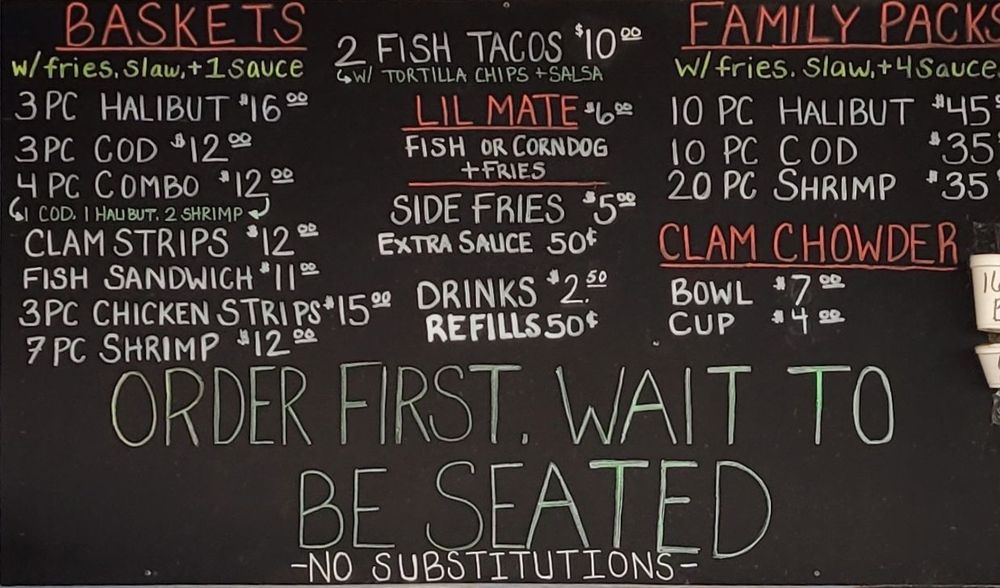 BASKETS
w/fries, slaw, + 1 sauce
3 PC HALIBUT $16.00
3 PC COD $12.00
4 PC COMBO $12.00
1 COD, 1 HALIBUT, 2 SHRIMP
CLAM STRIPS $12.00
FISH SANDWICH $11.00
3 PC CHICKEN STRIPS $15.00
7 PC SHRIMP $12.00
2 FISH TACOS $10.00
W/ TORTILLA CHIPS + SALSA
LIL MATE $6.00
FISH OR CORNDOG
+ FRIES
SIDE FRIES $5.00
EXTRA SAUCE 50¢
DRINKS $2.50
REFILLS 50¢
FAMILY PACKS
w/fries, slaw, + 4 sauce
10 PC HALIBUT $45
10 PC COD $35
20 PC SHRIMP $35
CLAM CHOWDER
BOWL $7.00
CUP $4.00
ORDER FIRST. WAIT TO
BE SEATED
-NO SUBSTITUTIONS-